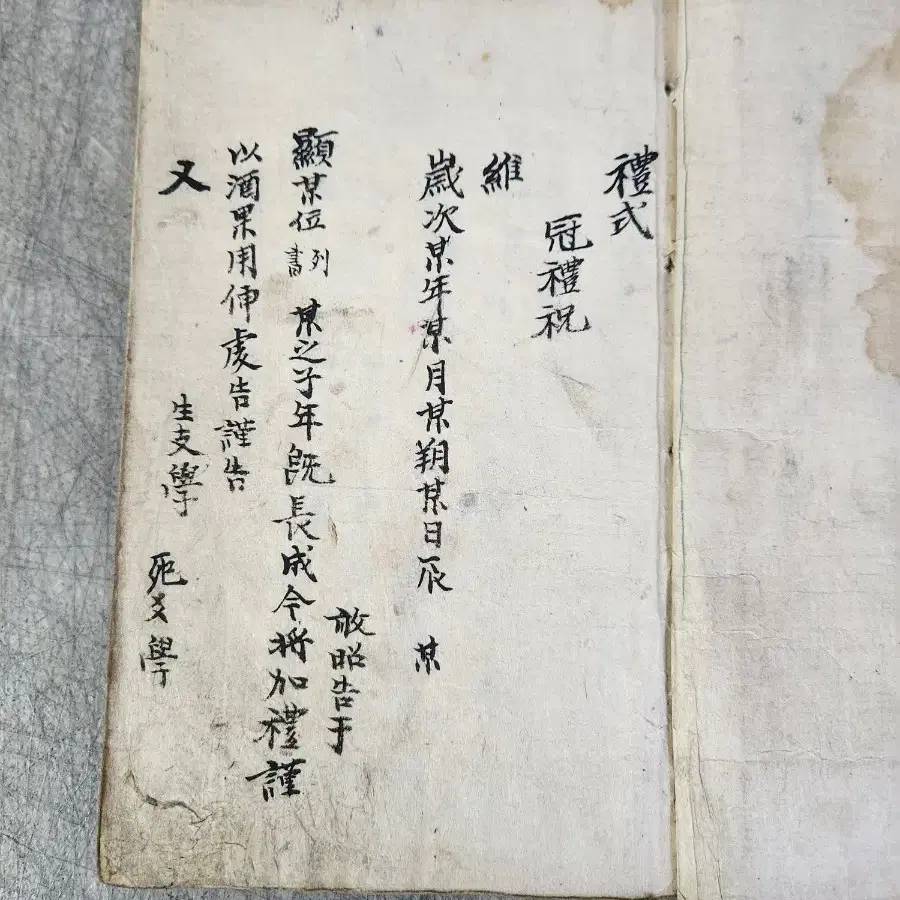 禮式
冠禮祝
維
歲次某年某月某朔某日辰 某
敢昭告于
顯某位列書 某之子年旣長成今將加禮謹
以酒果用伸虔告謹告
又 生支學 死支學